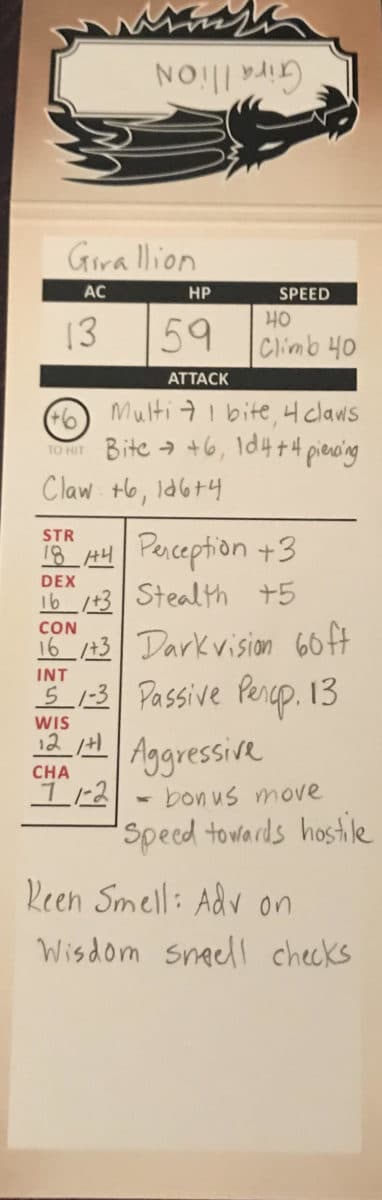 Girallion
Girallion
AC HP SPEED
13 59 40
Climb 40
ATTACK
+6 Multi → 1 bite, 4 claws
TO HIT Bite → +6, 1d4+4 piercing
Claw +6, 1d6+4
STR
18 /+4 Perception +3
DEX
16 /+3 Stealth +5
CON
16 /+3 Darkvision 60ft
INT
5 /-3 Passive Percp. 13
WIS
12 /+1 Aggressive
CHA
7 /-2 - bonus move
Speed towards hostile
Keen Smell: Adv on
Wisdom smell checks